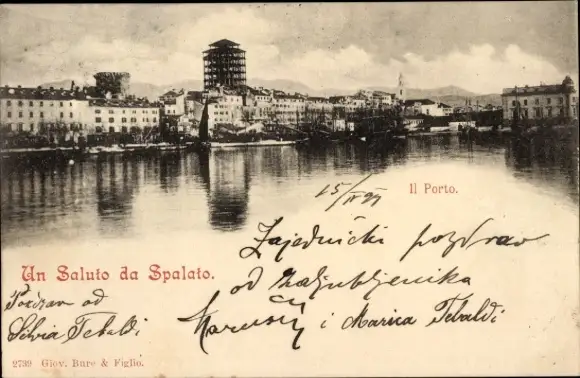 15/IV 99
Il Porto.
Zajednički pozdrav
od Zaljubljenika
Un Saluto da Spalato.
Pozdrav od
Silvia Tebaldi
i Marica Tebaldi
2739 Giov. Buro & Figlio.